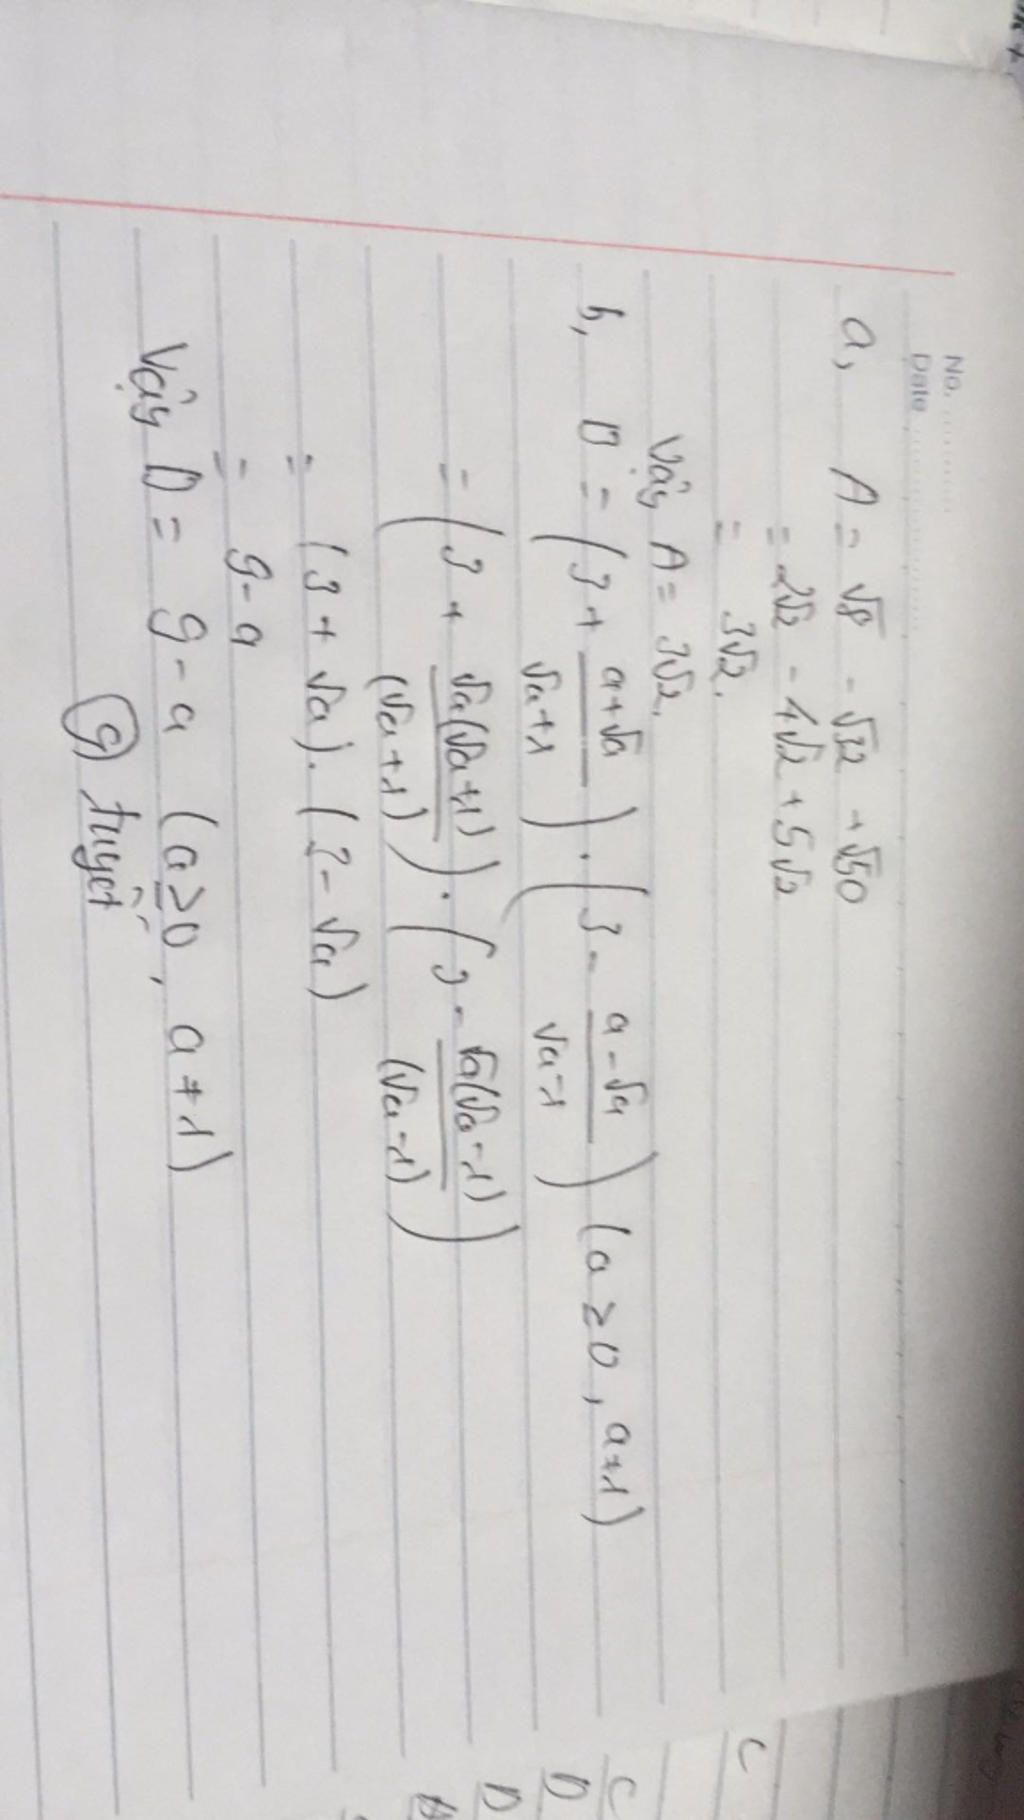 No.
Date
a, A = √8 - √32 + √50
= 2√2 - 4√2 + 5√2
= 3√2.
Vậy A = 3√2.
b, D = (3 + (a+√a)/(√a+1)) . (3 - (a-√a)/(√a-1)) (a ≥ 0, a≠1)
= (3 + (√a(√a+1))/((√a+1))) . (3 - (√a(√a-1))/((√a-1)))
= (3 + √a) . (3 - √a)
= 9 - a
Vậy D = 9 - a (a ≥ 0, a ≠ 1)
(9) tuyết
C
C
D
D